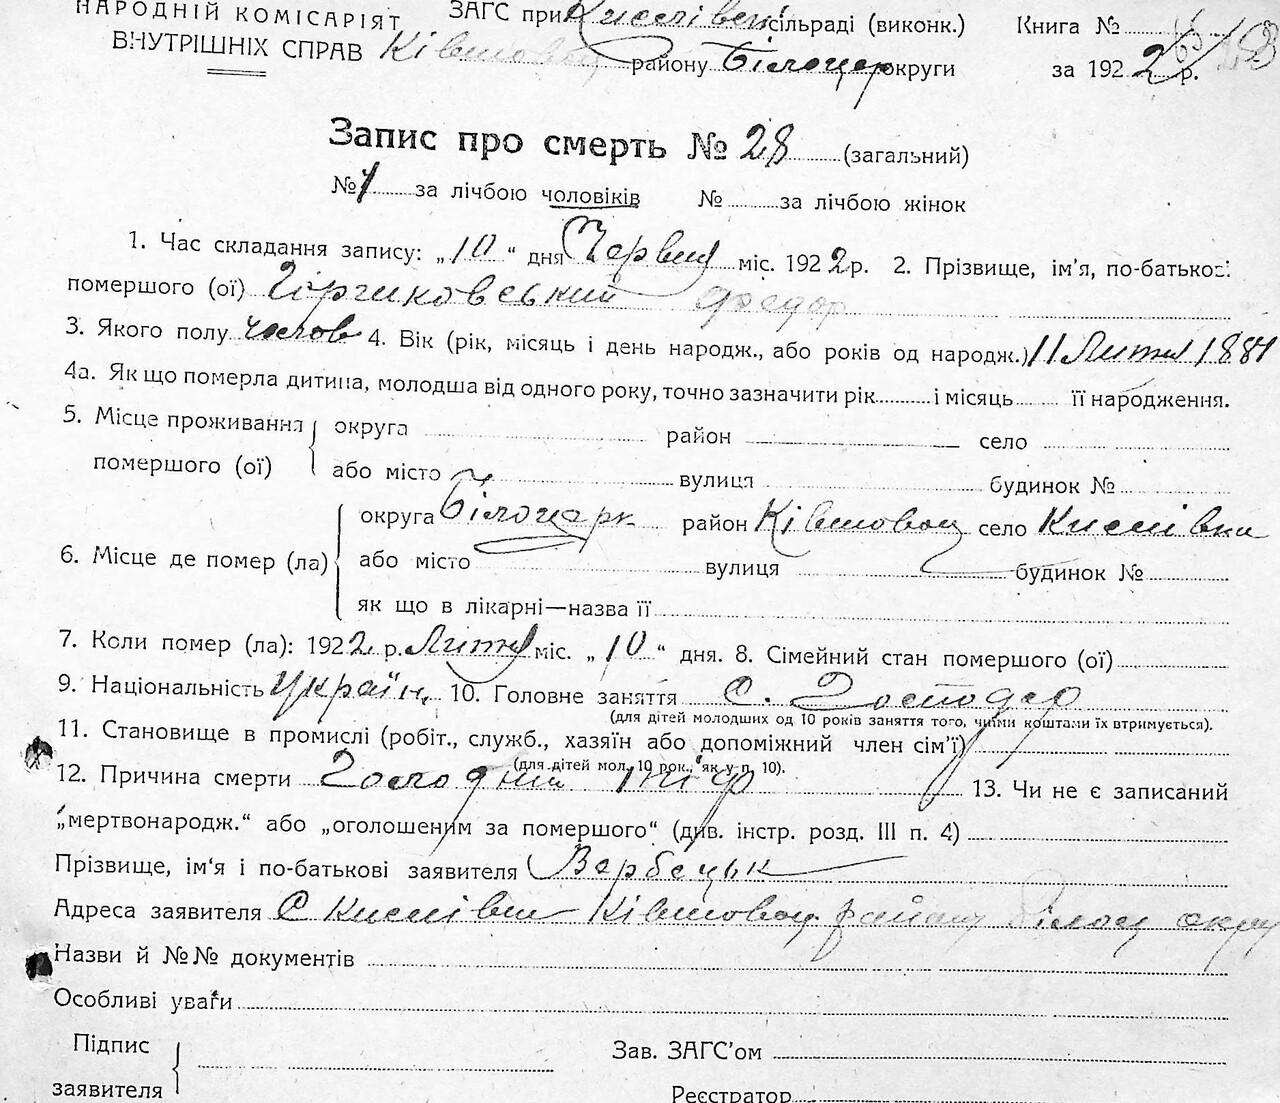 НАРОДНІЙ КОМІСАРІЯТ ЗАГС при сільраді (виконк.) Книга №
ВНУТРІШНІХ СПРАВ району Білоцер округи за 1922 р.
Запис про смерть № 28 (загальний)
№ 1 за лічбою чоловіків № за лічбою жінок
1. Час складання запису: „10“ дня Червня міс. 1922 р. 2. Прізвище, ім'я, по-батькові
помершого (ої) Федор
3. Якого полу чолов 4. Вік (рік, місяць і день народж., або років од народж.) 11 Лютня 1881
4а. Як що померла дитина, молодша від одного року, точно зазначити рік і місяць її народження.
5. Місце проживання помершого (ої) округа район село
або місто вулиця будинок №
6. Місце де помер (ла) округа Білоцерк район село
або місто вулиця будинок №
як що в лікарні—назва її
7. Коли помер (ла): 1922 р. Лютня міс. „10“ дня. 8. Сімейний стан помершого (ої)
9. Національність Україн. 10. Головне заняття С. Господар
(для дітей молодших од 10 років заняття того, чиїми коштами їх втримується).
11. Становище в промислі (робіт., служб., хазяїн або допоміжний член сім'ї)
(для дітей мол. 10 рок., як у п. 10).
12. Причина смерти Голодний тіф 13. Чи не є записаний
„мертвонародж.“ або „оголошеним за помершого“ (див. інстр. розд. III п. 4)
Прізвище, ім'я і по-батькові заявителя Вербецьк
Адреса заявителя С району Білоц окру
Назви й №№ документів
Особливі уваги
Підпис заявителя Зав. ЗАГС'ом
Реєстратор